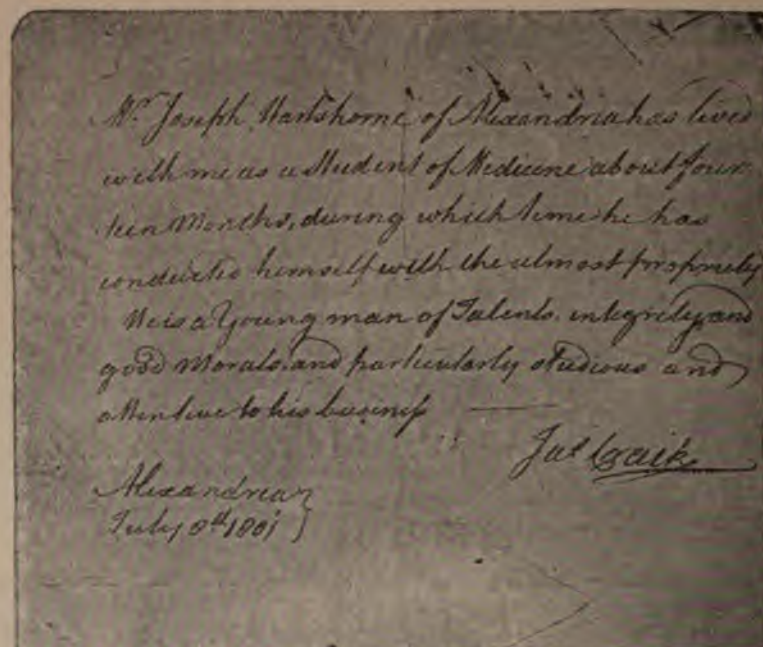 Mr. Joseph Hartshorne of Alexandria has lived
with me as a Student of Medicine about four-
teen Months, during which time he has
conducted himself with the utmost propriety
He is a Young man of Talents, integrity and
good Morals, and particularly studious and
attentive to his business
Jas Craik
Alexandria
July 8th 1801